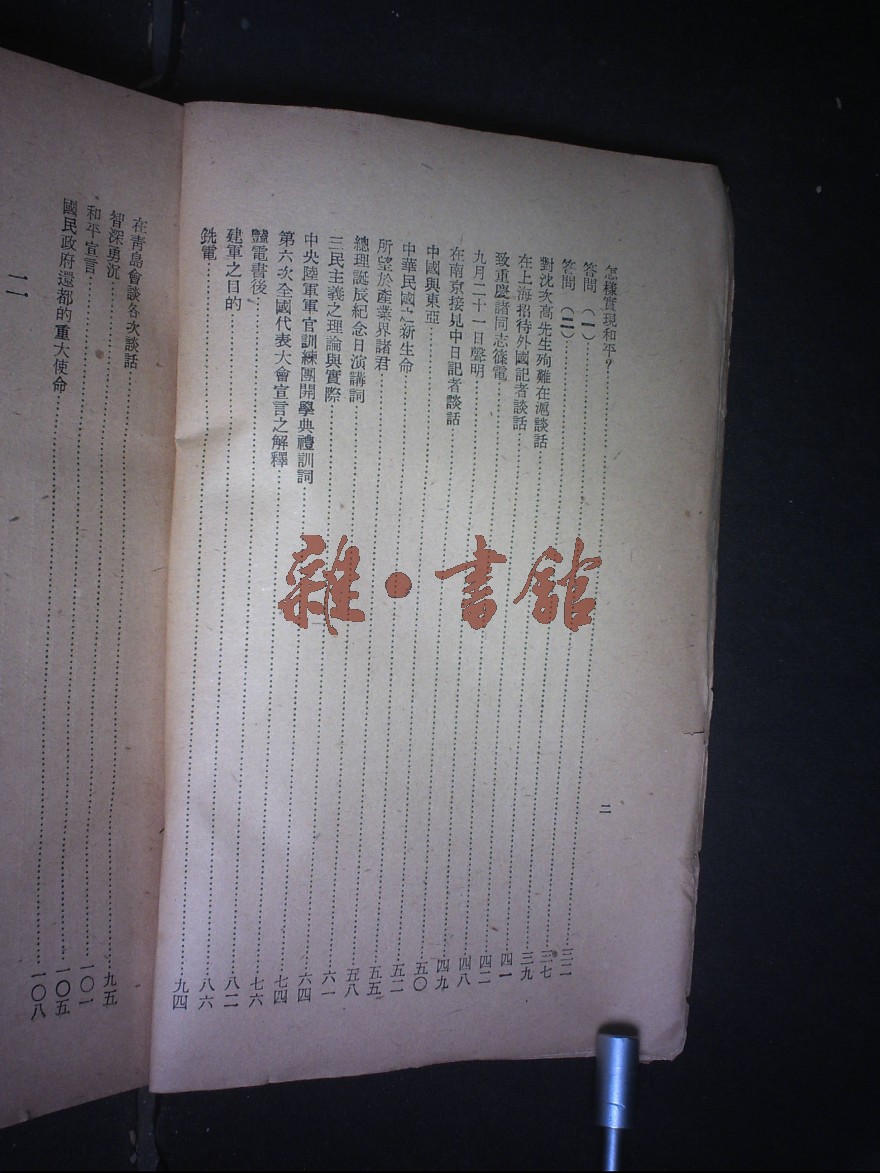 二
怎樣實現和平?……三二
答問(一)……三七
答問(二)……三九
對沈次高先生殉難在滬談話……四一
在上海招待外國記者談話……四二
致重慶諸同志篠電……四八
九月二十一日聲明……四九
在南京接見中日記者談話……五〇
中國與東亞……五二
中華民國之新生命……五五
所望於產業界諸君……五八
總理誕辰紀念日演講詞……六一
三民主義之理論與實際……六四
中央陸軍軍官訓練團開學典禮訓詞……七四
第六次全國代表大會宣言之解釋……七六
豔電書後……八二
建軍之目的……八六
銑電……九四
在青島會談各次談話……九五
智深勇沉……一〇一
和平宣言……一〇五
國民政府還都的重大使命……一〇八
二
雜·書館